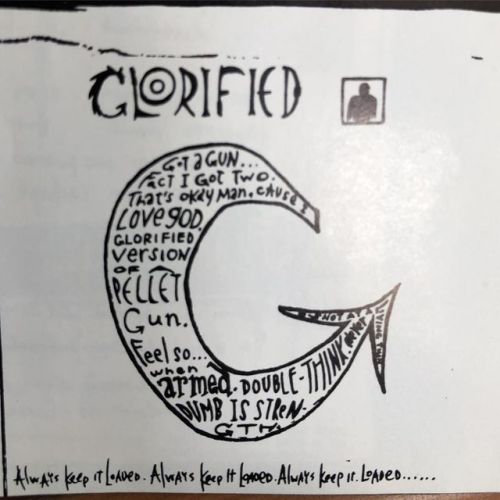 GLORIFIED
G
GOT a GUN...
FACT I GOT TWO.
That's okay Man. cause I
LOVE GOD.
GLORIFIED
VERSION
OF
PELLET
Gun.
Feel so...
when
armed. DOUBLE-THINK.
DUMB IS STREN-
GTH.
Always keep it Loaded. Always keep it Loaded. Always keep it. Loaded......